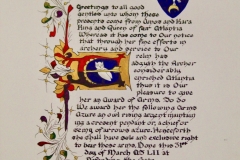 Greetings to all good
gentles unto whom these
presents come from Amos and Kara
King and Queen of fair Atlantia
Whereas it has come to Our notice
that through her fine efforts in
archery and service to Our
reign has
adquyth the Archer
considerably
enriched Atlantia
thus it is Our
pleasure to gave
her an Award of Arms. So Do
We award her the following Carmes
Azure an owl rising argent maintaining
a crescent pendant or, a chief or
semy of arrows azure. Henceforth
she shall have sole and exclusive right
to bear these arms. Done this 31st
day of March AS LII at